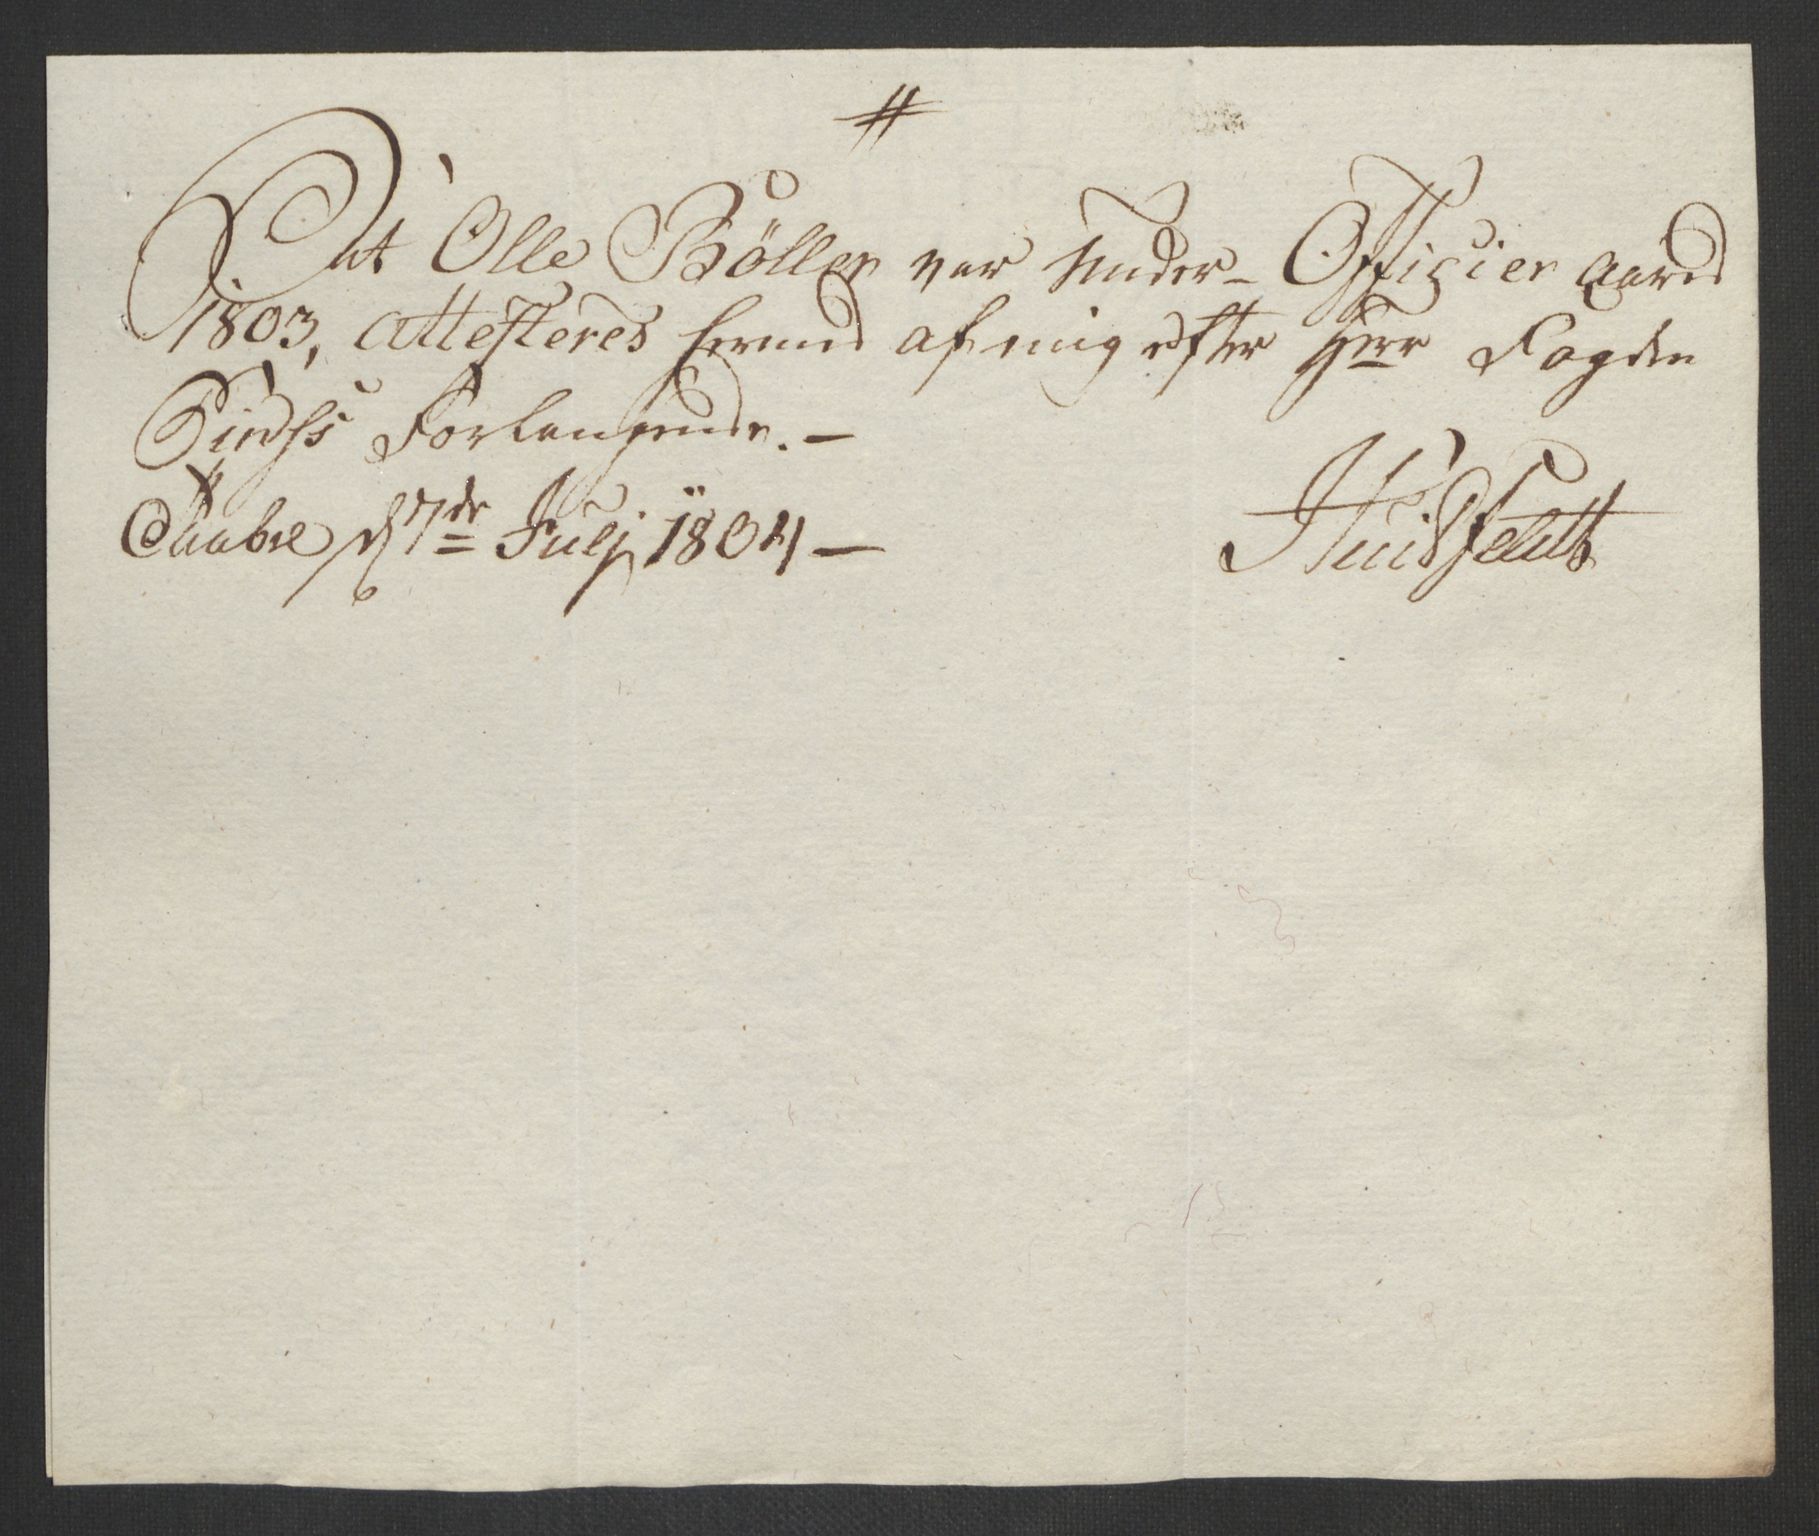 #
At Olle Böller var Under-Offisier Aaret
1803, attesteres herved af mig efter Herr Fogden
Forlangende. –
d 7de Julj 1804 –
Huidtfeldt